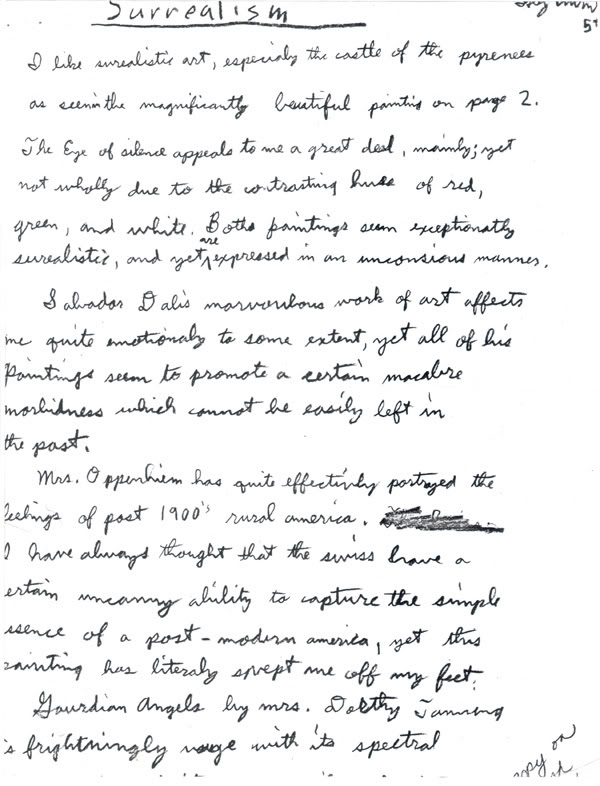 Surrealism
5
I like surealistic art, especialy the castle of the pyrenees
as seen in the magnificantly beutiful painting on page 2.
The Eye of silence appeals to me a great deal, mainly; yet
not wholly due to the contrasting hues of red,
green, and white. Boths paintings seem exceptionatly
surealistic, and yet, are expressed in an unconsious manner.
Salvador Dalis work of art affects
me quite emotionaly to some extent, yet all of his
Paintings seem to promote a certain macabre
morbidness which cannot be easily left in
the past.
Mrs. Oppenhiem has quite effectivly portrayed the
feelings of post 1900's rural america.
I have always thought that the swiss have a
ertain uncanny ability to capture the simple
ssence of a post-modern america, yet this
painting has literaly swept me off my feet.
Gaurdian Angels by mrs. Dolthy Tanning
is frightningly with its spectral
on